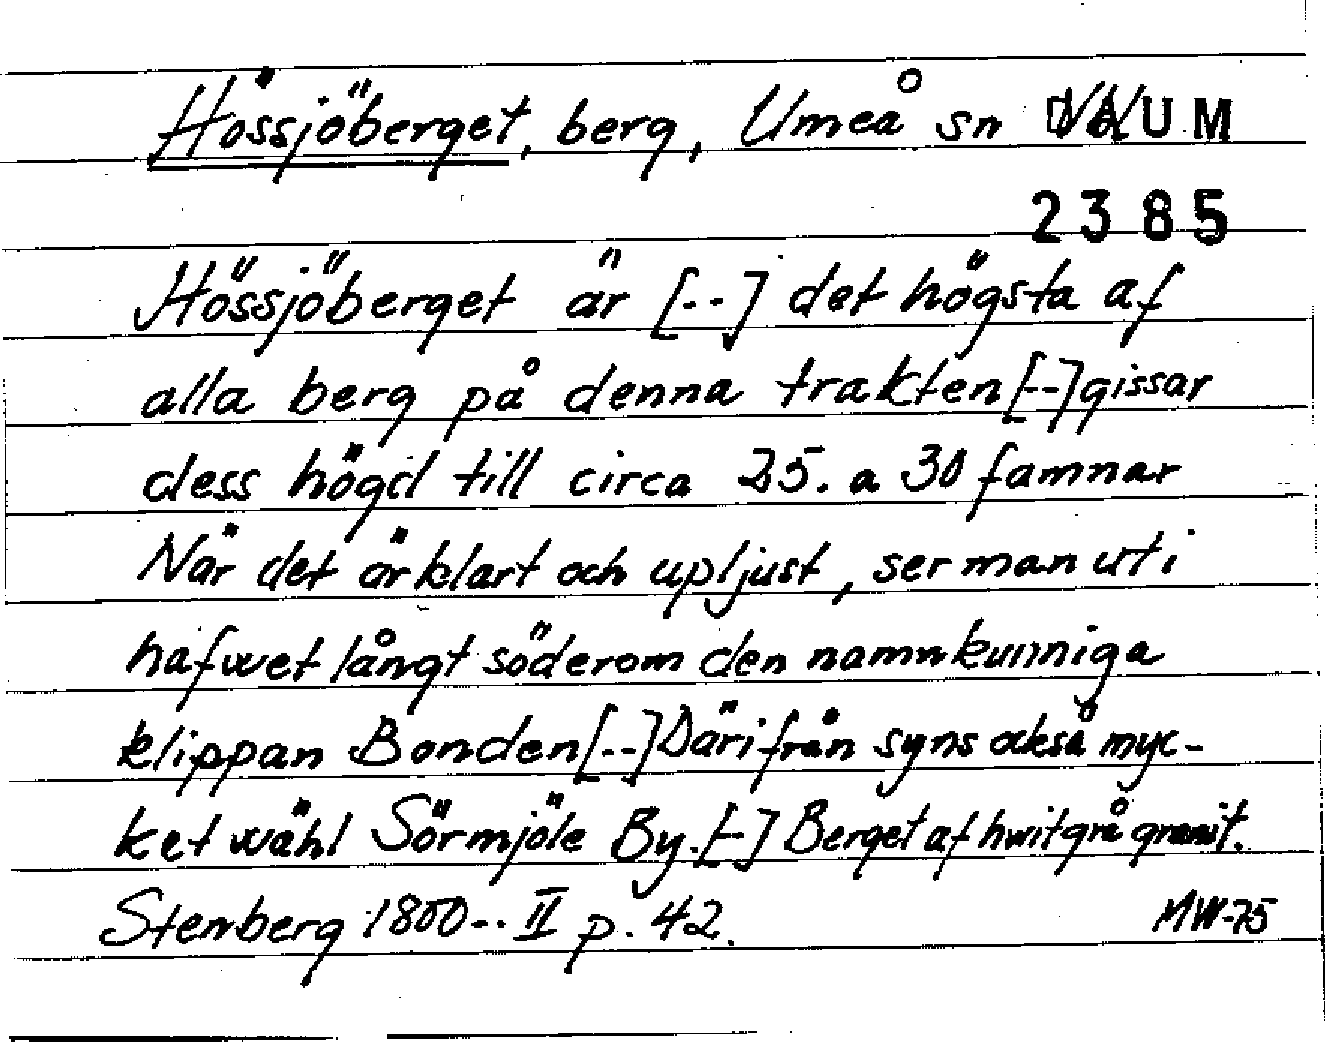 Hössjöberget, berg, Umeå sn DAUM
2385
Hössjöberget är [--] det högsta af
alla berg på denna trakten [--] gissar
dess högd till circa 25. a 30 famnar
När det är klart och upljust, ser man uti
hafwet långt söderom den namnkunniga
klippan Bonden [--] Därifrån syns också myc-
ket wähl Sörmjöle By. [-] Berget af hwitgrå granit.
Stenberg 1800-.. II p. 42. MW-75